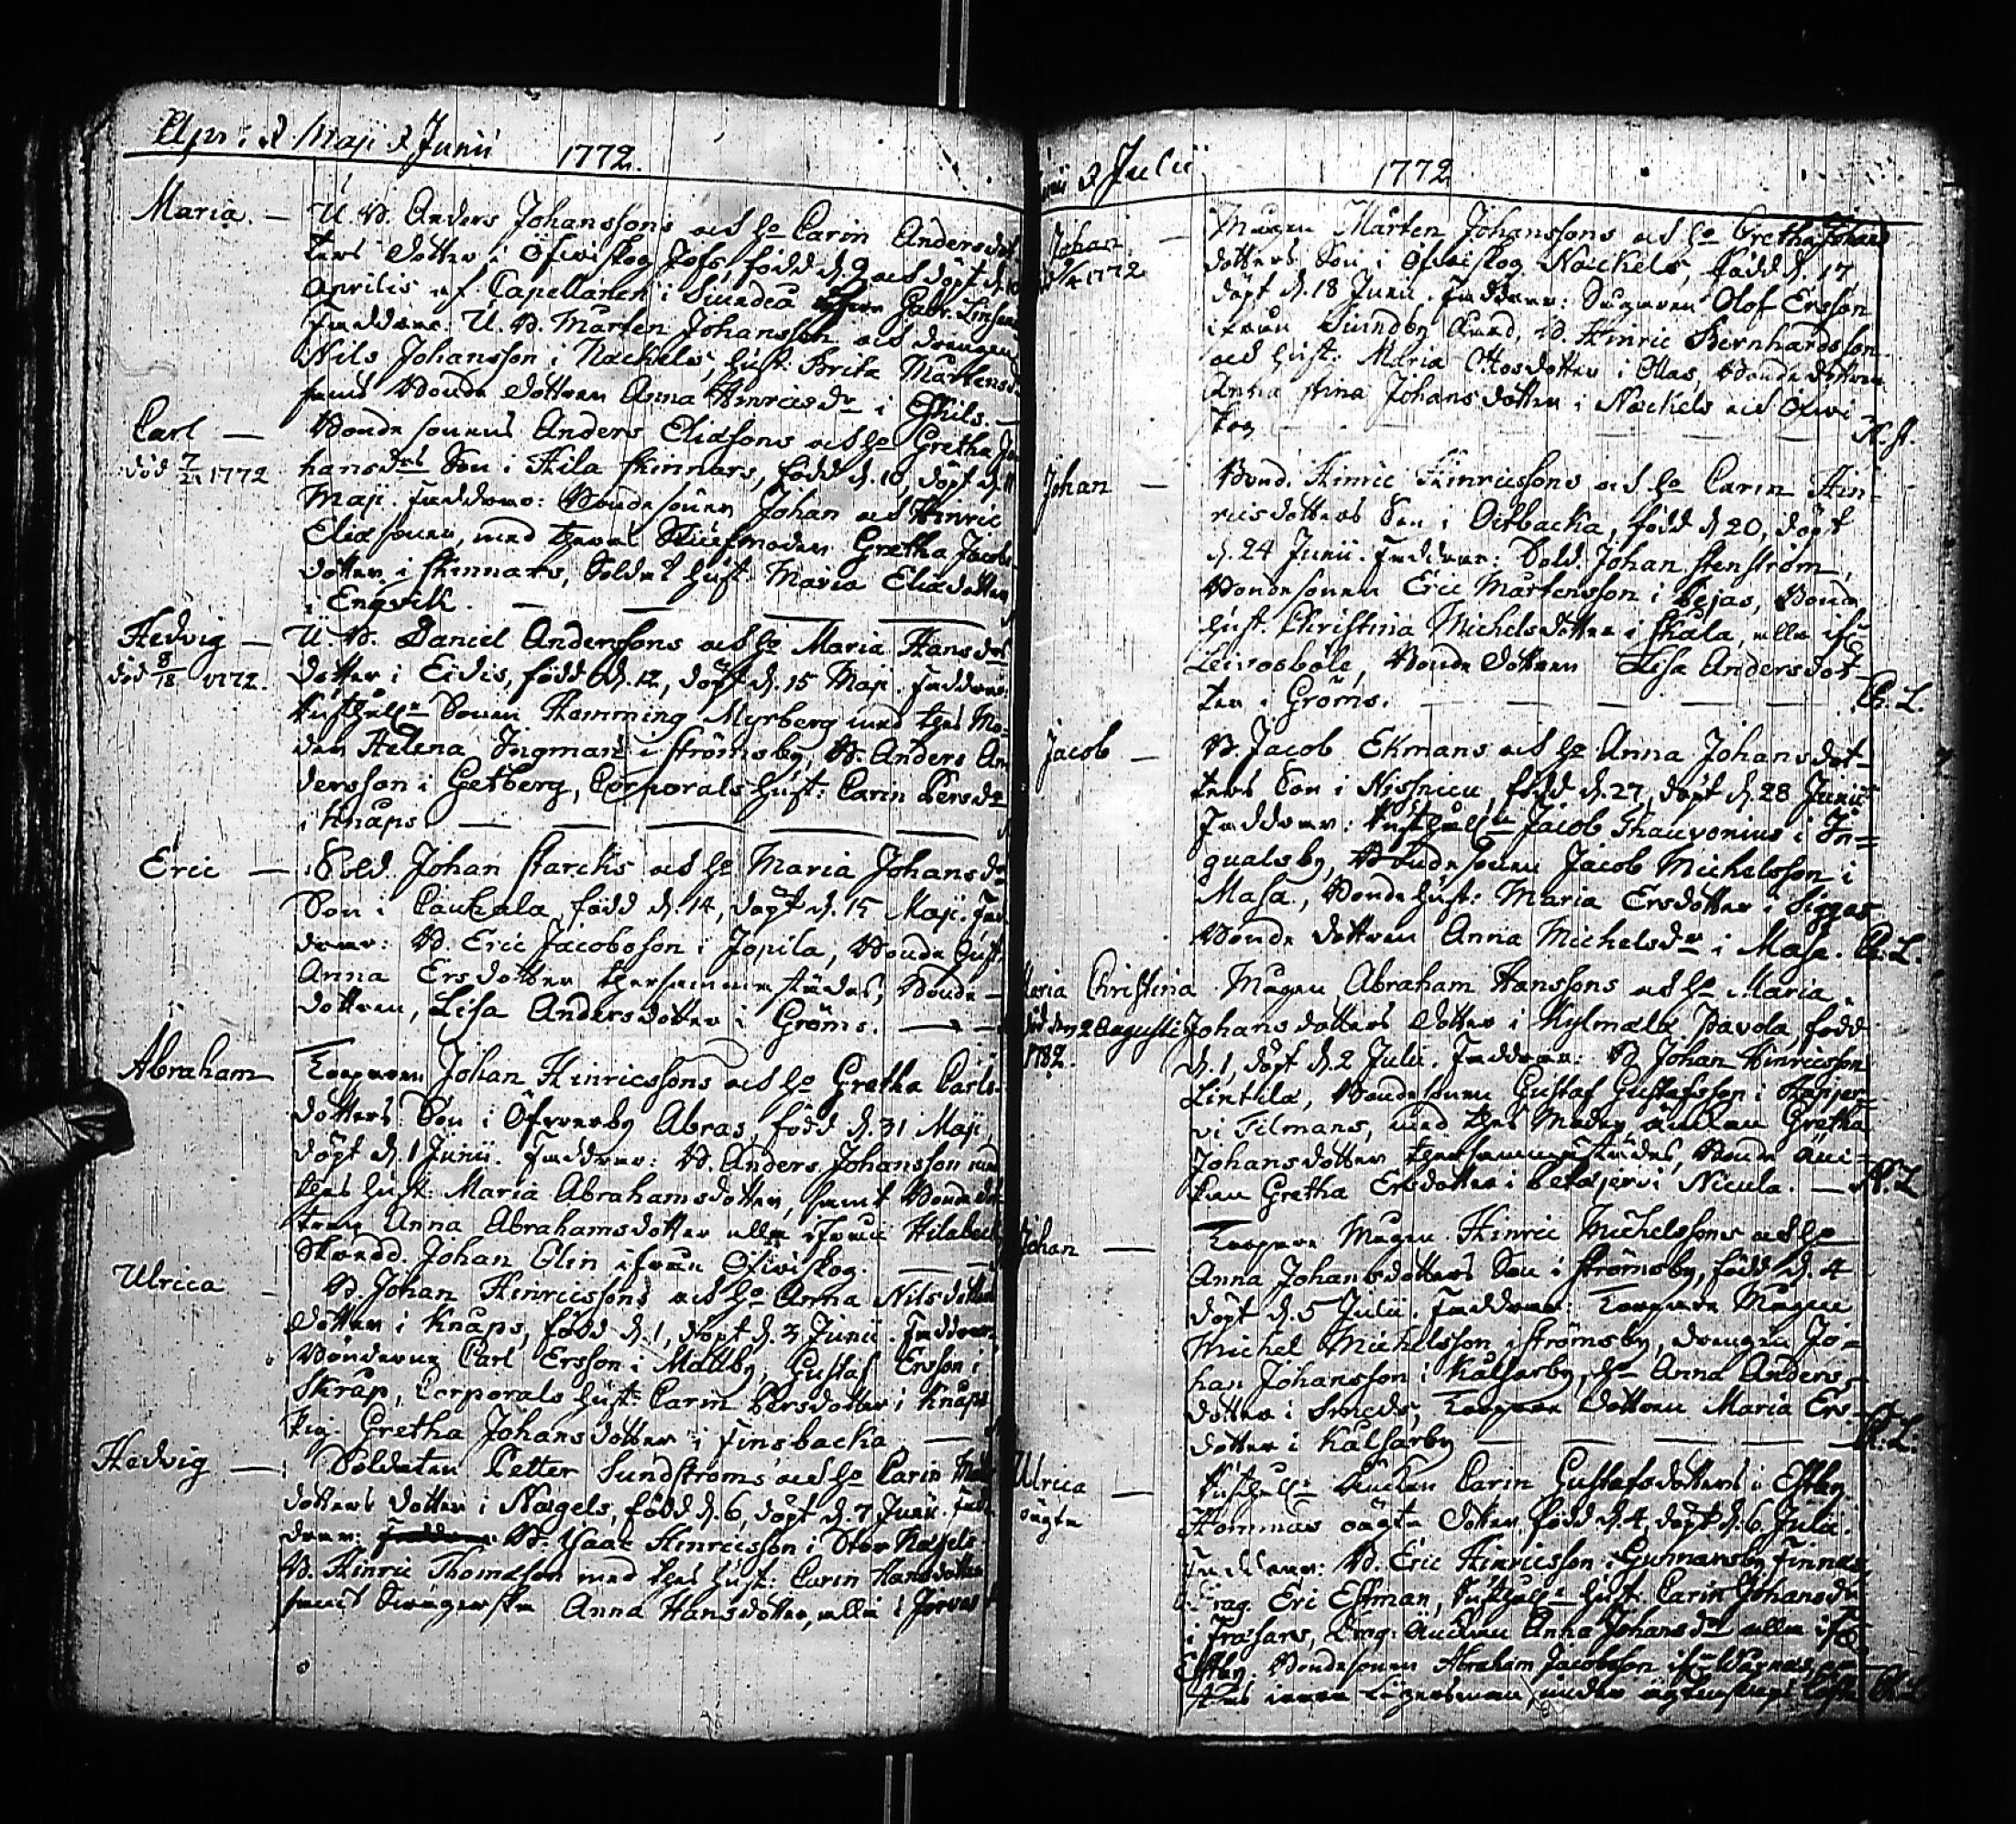 Apr: & Maji & Junii 1772.
Maria. — U. B. Anders Johanssons och h:o Carin Andersdot
ters dotter i Öfwiskog Jofs, född d. 9 och döpt d. 10
Aprilis af Capellanen i Sundeå Gabr.
Faddrar: U. B. Mårten Johansson och drengen
Nils Johansson i Nackels, hust: Brita Mårtensd.
samt Bonde dottren Anna Hinricsdr i Eskils. —
Carl — Bonde sonens Anders Eliæsons och h:o Gretha Jo
död 7/21 1772 hansdrs Son i Hila Skinnars, född d. 10, döpt d. 11
Maji. Faddrar: Bondesonen Johan och Hinric
Eliæsöner, med theras Stiufmoder Gretha Jacobs
dotter i Skinnars, Soldat hust: Maria Eliædotter
i Engvik. —
Hedvig — U. B. Daniel Anderssons och h:o Maria Hansdrs
död 8/18 1772. dotter i Eidis, född d. 12, döpt d. 15 Maji. Faddrar:
Rusthåll:n Sonen Flemming Myrberg med thes Mo-
der Helena Ingman i Strömsby, B. Anders An
dersson i Getberg, Corporals hust: Carin Persdr
i Knaps —
Eric — Sold. Johan Starcks och h:o Maria Johansdrs
Son i Caukala, född d. 14, döpt d. 15 Maji. Fad
drar: B. Eric Jacobsson i Jopila, Bonde hust.
Anna Ersdotter thersammastädes, Bonde —
dottren, Lisa Andersdotter i Gröms. —
Abraham Torparen Johan Hinricssons och h:o Gretha Carls-
dotters Son i Öfverby Abras, född d. 31 Maji,
döpt d. 1 Junii. Faddrar: B. Anders Johansson med
thes hust: Maria Abrahamsdotter, samt Bonde dot
tren Anna Abrahamsdotter alla ifrån Hilabeck
Skredd. Johan Elin ifrån Öfwiskog. —
Ulrica — B. Johan Hinricssons och h:o Anna Nilsdotters
dotter i Knaps, född d. 1, döpt d. 3 Junii. Faddrar:
Bönderne Carl Ersson i Mattby, Gustaf Ersson i
Skräp, Corporals hust: Carin Persdotter i Knaps
Pig. Gretha Johansdotter i Finsbacka —
Hedvig — Soldaten Petter Sundströms och h:o Carin
dotters dotter i Nägels, född d. 6, döpt d. 7 Junii. Fad
drar: B. Isaac Hinricsson i Stor Nägels
B. Hinric Thomæson med thes hust: Carin Hansdotter
samt Anna Hansdotter, alla i Jorvas
& Julii 1772
Johan — Mågen Mårten Johanssons och h:o Gretha Johans
1772 dotters Son i Öfwiskog Nackels, född d. 17
döpt d. 18 Junii. Faddrar: Olof Ersson
ifrån Sundby, B. Hinric Bernhardsson
och hust: Maria Ottosdotter i Ollas, Bonde dottren
Anna Stina Johansdotter i Nackels och Öfwi
skog —
Johan — Bond. Hinric Hinricssons och h:o Carin Hin-
ricsdotters Son i Oitbacka, född d 20, döpt
d. 24 Junii. Faddrar: Sold. Johan Stenström,
Bondesonen Eric Mårtensson i Pejas, Bonde
hust. Christina Michelsdotter i Skåla, alla ifr
Leivosböle, Bonde dottren Lisa Andersdot-
ter i Gröms. — A. L.
Jacob — B. Jacob Ekmans och h:o Anna Johansdot-
ters Son i Nissnicu, född d. 27, döpt d. 28 Junii
Faddrar: Rusthåll:n Jacob Thauvonius i In=
gvalsby, Bondesonen Jacob Michelsson i
Masa, Bonde hust: Maria Ersdotter i Siggas
Bonde dottren Anna Michelsdr i Masa. A. L.
Maria Christina Mågen Abraham Hanssons och h:o Maria
död den 2 Augusti Johansdotters dotter i Kylmälä Pavola, född
1782. d. 1, döpt d. 2 Julii. Faddrar: B. Johan Hinricsson
Lintila, Bondesonen Gustaf Gustafsson i Hapjer-
vi Tilmans, med thes Moder änkan Gretha
Johansdotter thersammastädes, Bonde äni-
kan Gretha Ersdotter i Petäjervi Nicula. — A. L
Johan — Torpare Mågen Hinric Michelssons och h:o
Anna Johansdotters Son i Strömsby, född d. 4
döpt d. 5 Julii. Faddrar: Torpare Mågen
Michel Michelsson i Strömsby, drengen Jo-
han Johansson i Kalsarby, h:o Anna Anders-
dotter i Smeds, Torpare dottren Maria Ers-
dotter i Kalsarby — A. L.
Ulrica — Rusthåll:s Änckan Carin Gustafsdotters i Estby
oägta Hommas oägta dotter född d. 4, döpt d. 6. Julii.
Faddrar: B. Eric Hinricsson i Gunnarsby Finnas,
Drag. Eric Estman, Rusthåll:s hust. Carin Johansdr
i Frasars, Drag: Änckan Anna Johansdr alla ifr
Estby. Bondesonen Abraham Jacobsson ifr
under ägtenskaps löfte A. L